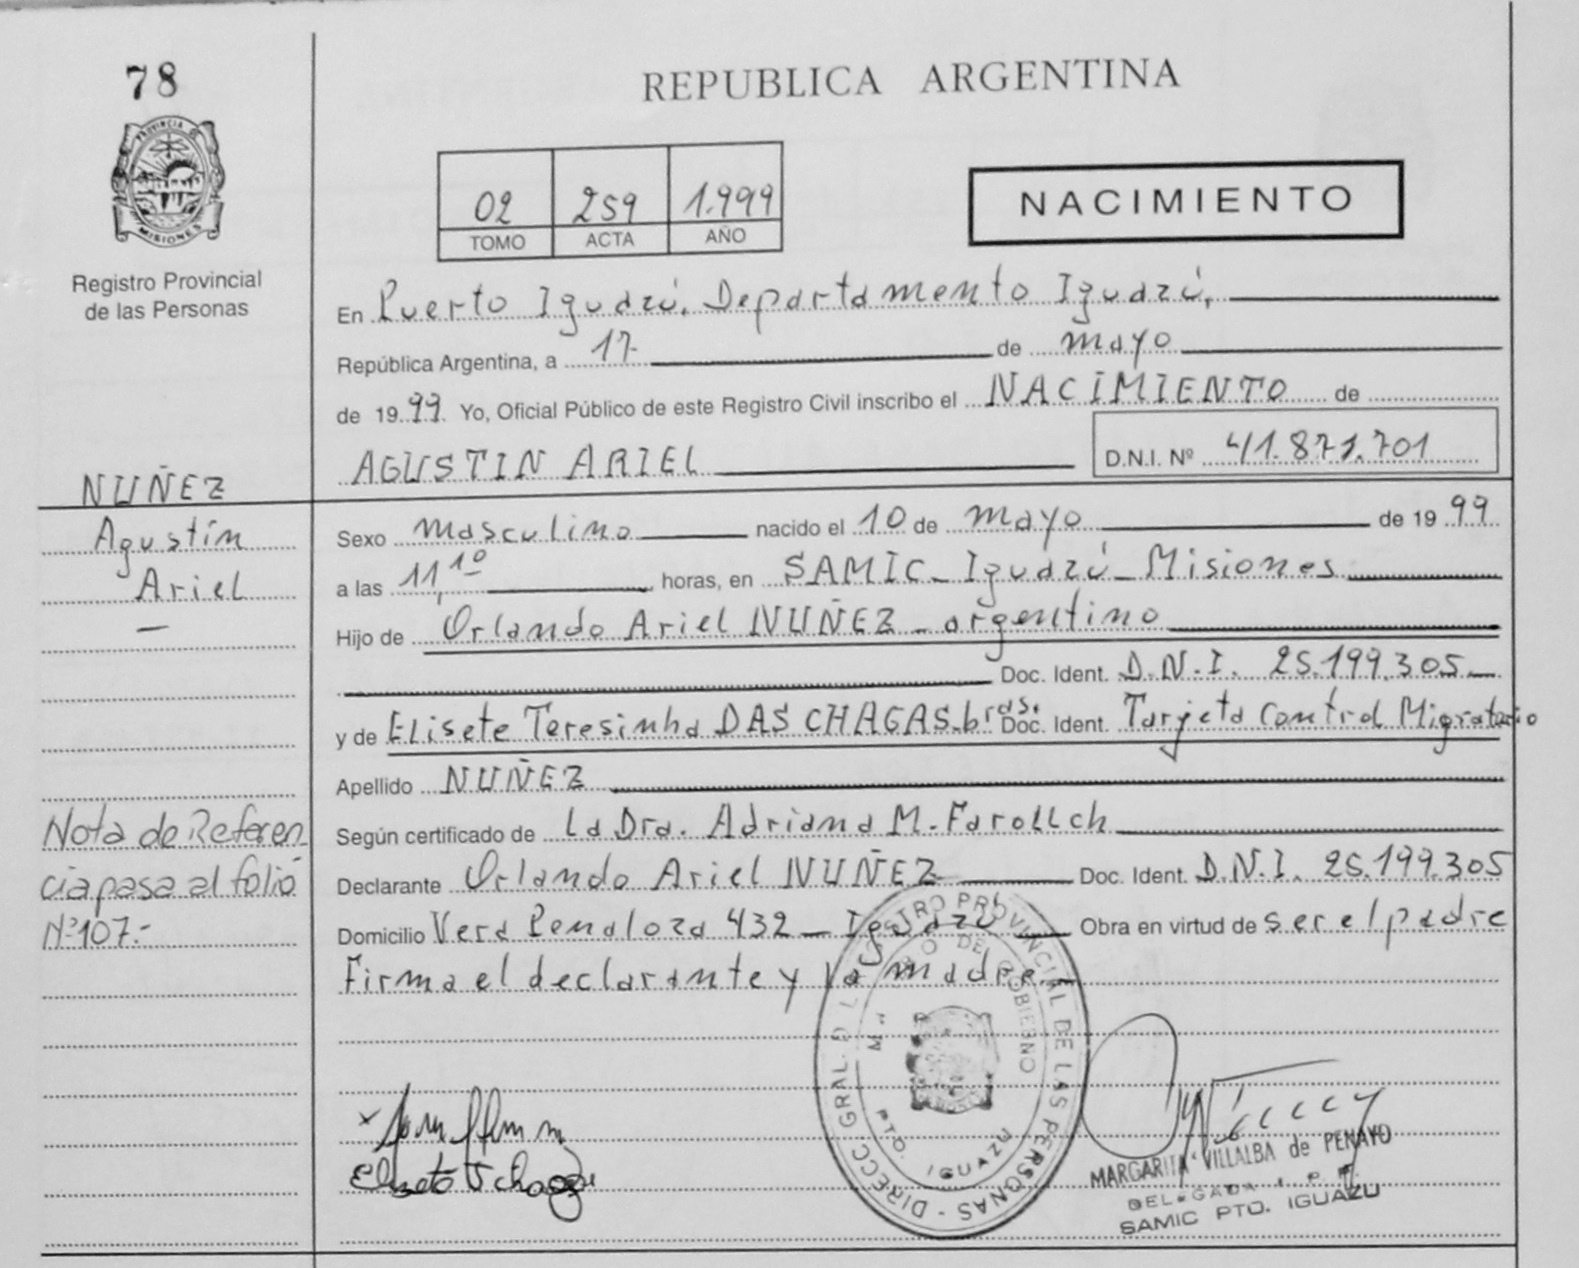 78
REPUBLICA ARGENTINA
PROVINCIA D
MISIONES
Registro Provincial
de las Personas
02 259 1.999
TOMO ACTA AÑO
NACIMIENTO
En Puerto Iguazú, Departamento Iguazú,
República Argentina, a 17 de mayo
de 1999 Yo, Oficial Público de este Registro Civil inscribo el NACIMIENTO de
AGUSTIN ARIEL D.N.I. Nº 41.871.701
NUÑEZ
Agustín
Ariel
Sexo masculino nacido el 10 de mayo de 1999
a las 11,10 horas, en SAMIC - Iguazú - Misiones
Hijo de Orlando Ariel NUÑEZ - argentino
Doc. Ident. D.N.I. 25.199.305
y de Elisete Teresinha DAS CHAGAS-bras. Doc. Ident. Tarjeta Control Migratorio
Apellido NUÑEZ
Según certificado de La Dra. Adriana M. Farollch
Declarante Orlando Ariel NUÑEZ Doc. Ident. D.N.I. 25.199.305
Domicilio Vera Penaloza 432 - Iguazú Obra en virtud de ser el padre
Firma el declarante y la madre
Nota de Referen
cia pasa al folio
Nº 107.-
DIRECC GRAL. D L REGISTRO PROVINCIAL DE LAS PERSONAS -
Mº DE GOBIERNO
PTO. IGUAZU
MARGARITA VILLALBA de PENAYO
DELEGADA
SAMIC PTO. IGUAZU